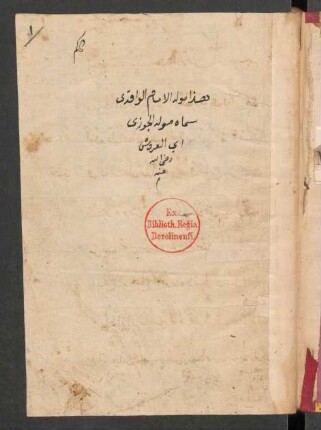 1
هذا مولد الامام الواقدى
سماه مولد الجوزى
اي العروس
رضى الله
عنه
Ex
Biblioth. Regia
Berolinensi.